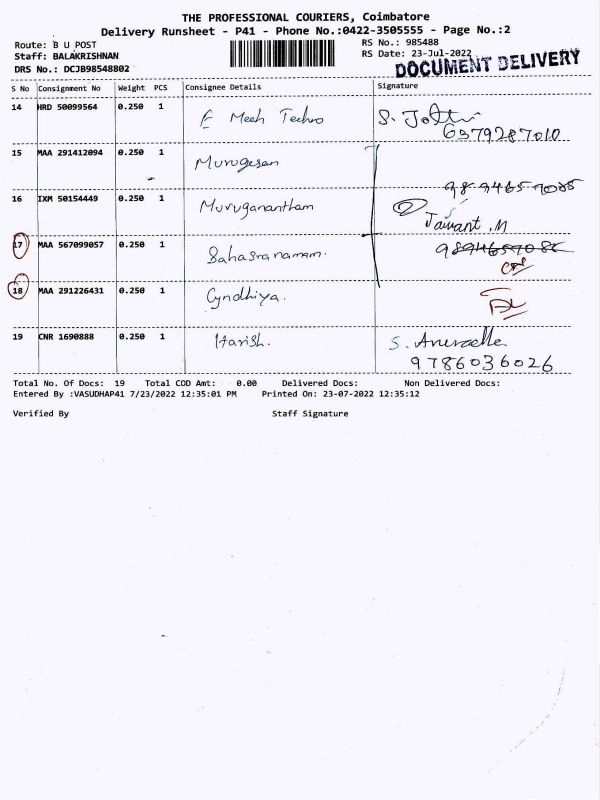 THE PROFESSIONAL COURIERS, Coimbatore
Delivery Runsheet - P41 - Phone No.:0422-3505555 - Page No.:2
Route: B U POST
RS No.: 985488
Staff: BALAKRISHNAN
RS Date: 23-Jul-2022
DRS No.: DCJB98548802
DOCUMENT DELIVERY
S No Consignment No Weight PCS Consignee Details Signature
14 HRD 50099564 0.250 1 E Mech Techno S. Jothi
6379287010
15 MAA 291412094 0.250 1 Murugesan
16 IXM 50154449 0.250 1 Muruganantham 2
Jaivant .M
17 MAA 567099057 0.250 1 Sahasranamam.
18 MAA 291226431 0.250 1 Cyndhiya. DL
19 CNR 1690888 0.250 1 Harish. S.
9786036026
Total No. Of Docs: 19 Total COD Amt: 0.00 Delivered Docs: Non Delivered Docs:
Entered By :VASUDHAP41 7/23/2022 12:35:01 PM Printed On: 23-07-2022 12:35:12
Verified By Staff Signature